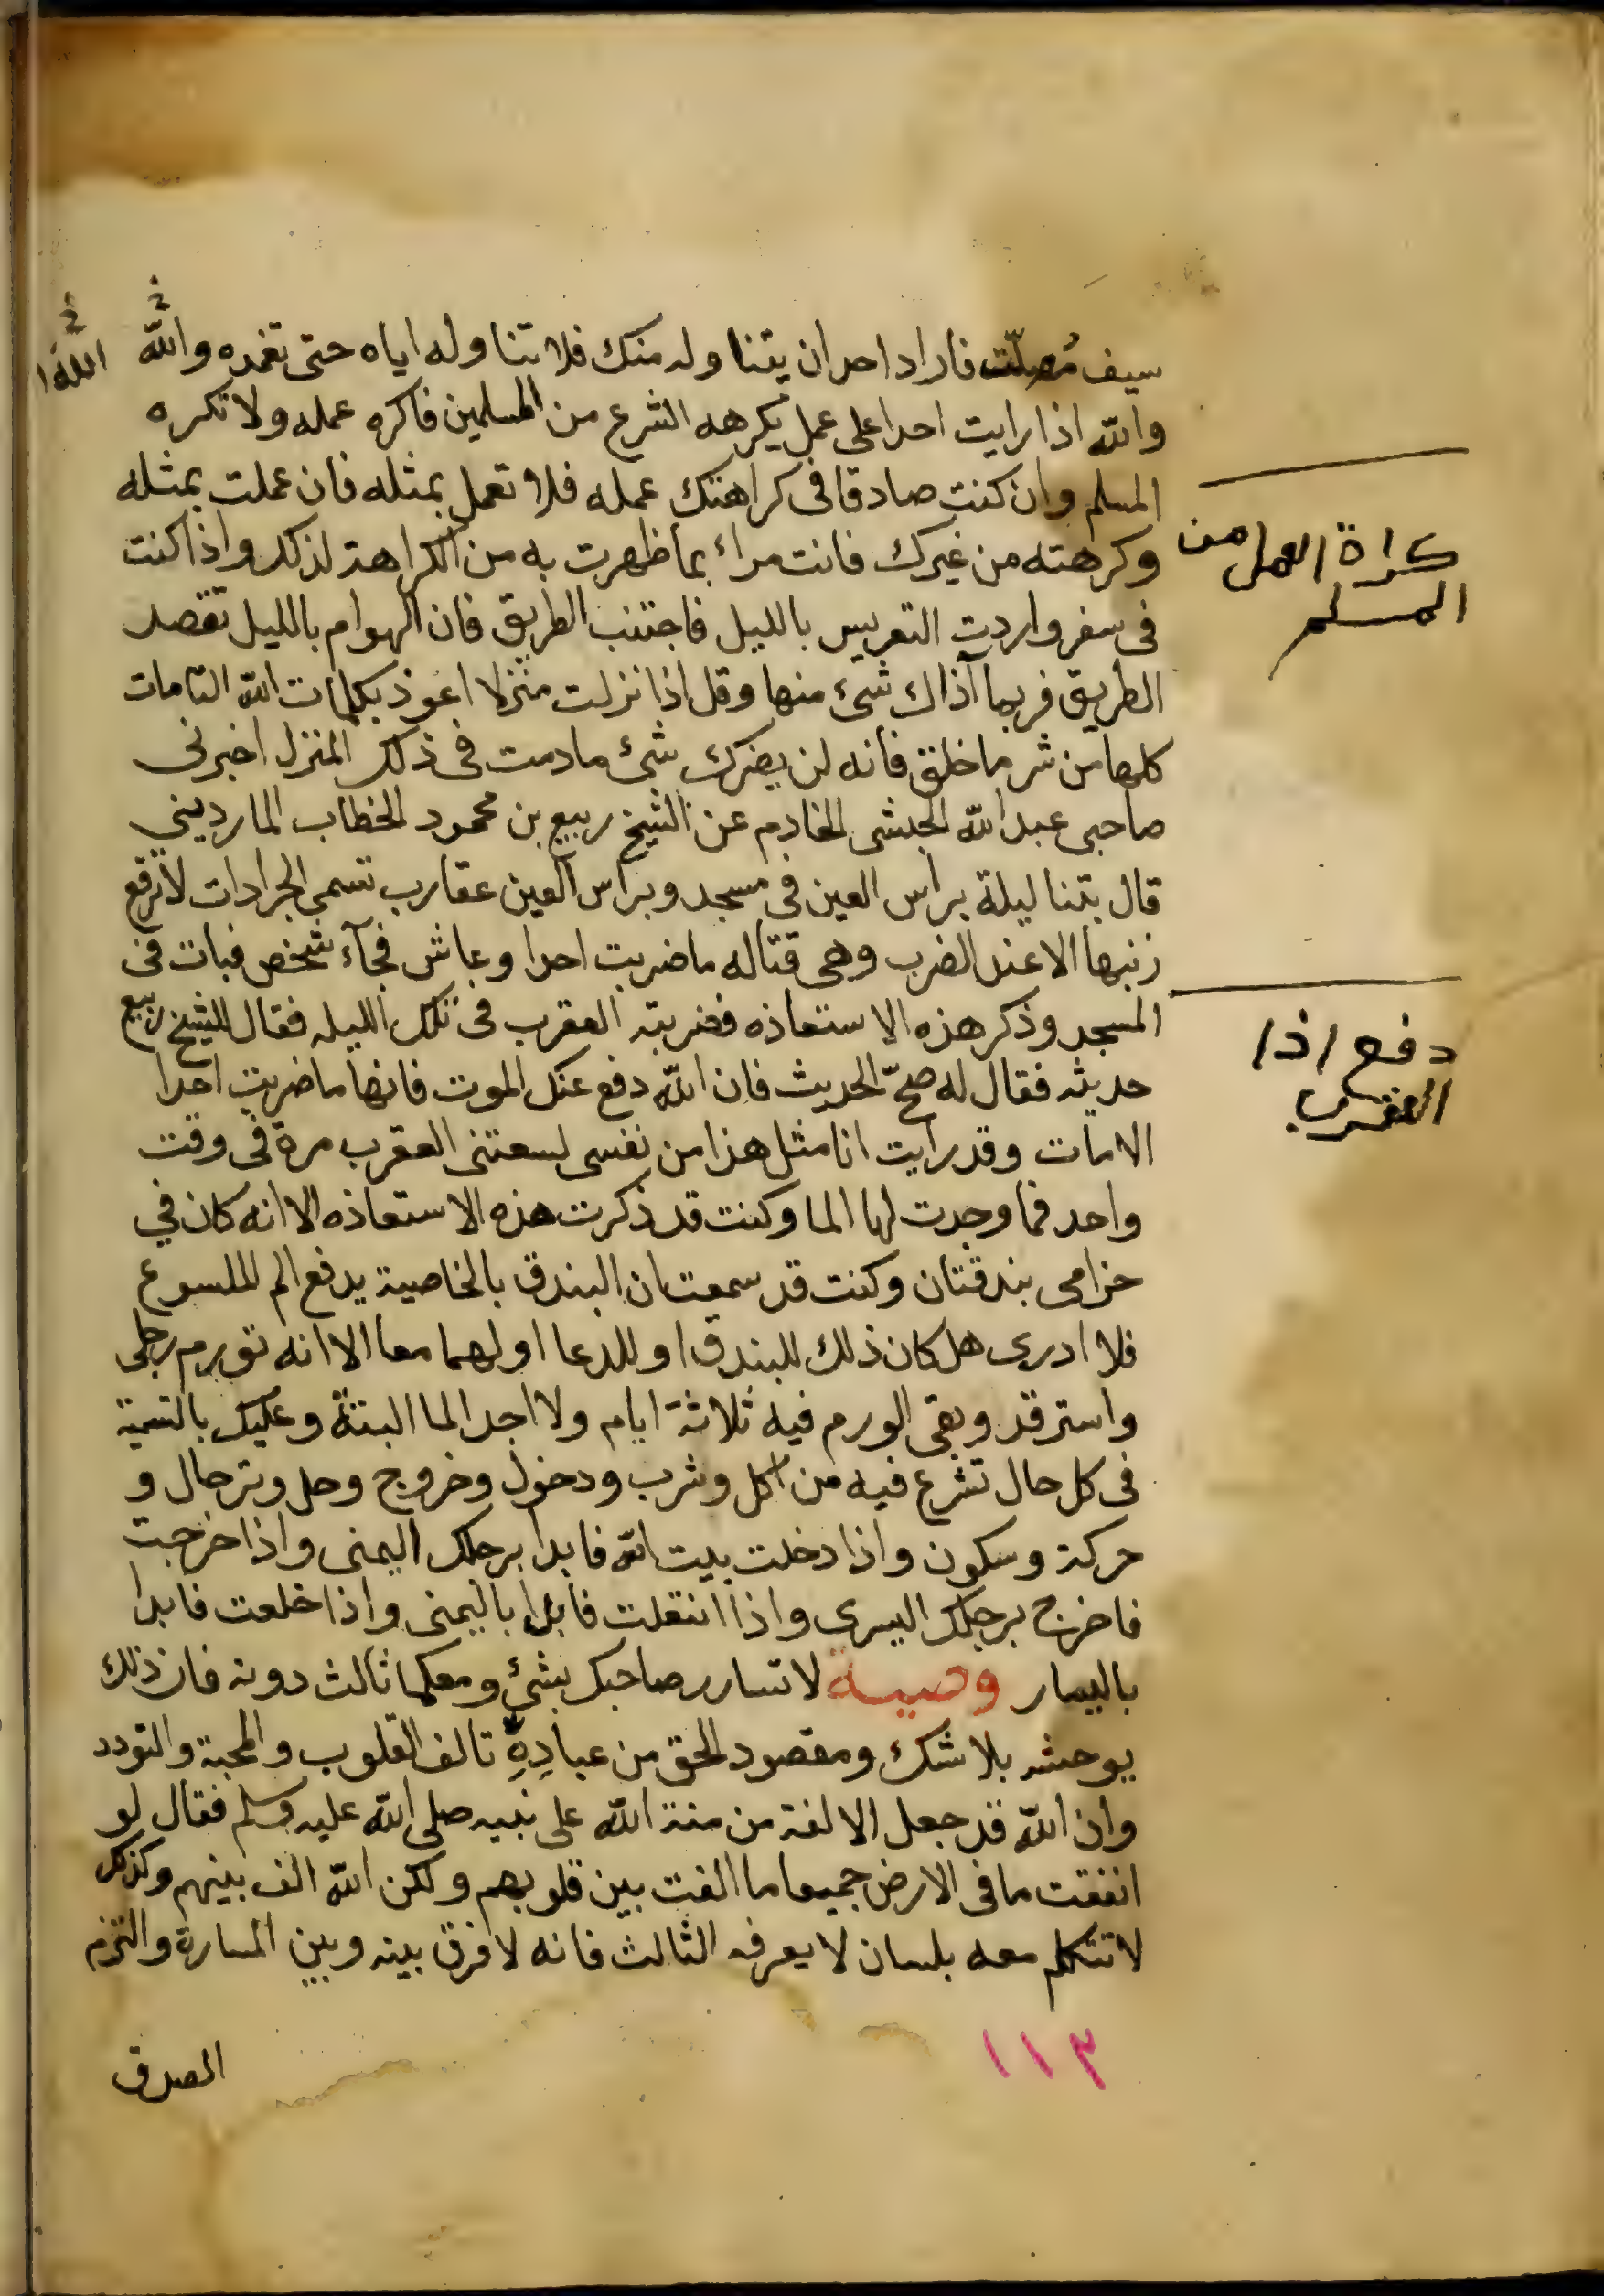 سيف مُصلّت فاراد احد ان يتناوله منك فلا تناوله اياه حتى تغمده والله الله
والله اذا رايت احدا على عمل يكرهه الشرع من المسلمين فاكره عمله ولا تكره
المسلم وان كنت صادقا فى كراهتك عمله فلا تعمل بمثله فان عملت بمثله
وكرهته من غيرك فانت مراء بما ظهرت به من الكراهة لذلك واذا كنت
كراة العمل من
المسلم
فى سفر واردت التعريس بالليل فاجتنب الطريق فان الهوام بالليل تقصد
الطريق فربما آذاك شئ منها وقل اذا نزلت منزلا اعوذ بكلمات الله التامات
كلها من شر ما خلق فانه لن يضرك شئ ما دمت فى ذلك المنزل اخبرنى
صاحبى عبد الله الحبشى الخادم عن الشيخ ربيع بن محمود الخطاب المارديني
قال بتنا ليلة براس العين فى مسجد وبراس العين عقارب تسمى الجرادات لا ترفع
زنبها الا عند الضرب وهى قتاله ما ضربت احدا وعاش فجآء شخص فبات فى
المسجد وذكر هذه الاستعاذه فضربته العقرب فى تلك الليله فقال للشيخ ربيع
دفع اذا
العقرب
حديثه فقال له صحّ الحديث فان الله دفع عنك الموت فانها ما ضربت احدا
الا مات وقد رايت انا مثل هذا من نفسى لسعتنى العقرب مرة فى وقت
واحد فما وجدت لها الما وكنت قد ذكرت هذه الاستعاذه الا انه كان في
حزامى بندقتان وكنت قد سمعت ان البندق بالخاصية يدفع الم الملسوع
فلا ادرى هل كان ذلك للبندق او للدعا او لهما معا الا انه تورم رجلى
واسترقد وبقى الورم فيه ثلاثة ايام ولا اجد الما البتة وعليك بالتسمية
فى كل حال تشرع فيه من اكل وشرب ودخول وخروج وحل وترحال و
حركة وسكون واذا دخلت بيت الله فابدا برجلك اليمنى واذا خرجت
فاخرج برجلك اليسرى واذا انتعلت فابدا باليمنى واذا خلعت فابدا
باليسار وصية لا تسارر صاحبك بشئ ومعكما ثالث دونه فان ذلك
يوحشه بلا شك ومقصود الحق من عبادِهِ تالف القلوب والمحبة والتودد
وان الله قد جعل الالفة من منة الله على نبيه صلى الله عليه وسلم فقال لو
انفقت ما فى الارض جميعا ما الفت بين قلوبهم ولكن الله الف بينهم وكذلك
لا تتكلم معه بلسان لا يعرفه الثالث فانه لا فرق بينه وبين المسارة والتزم
١١٣
الصدق